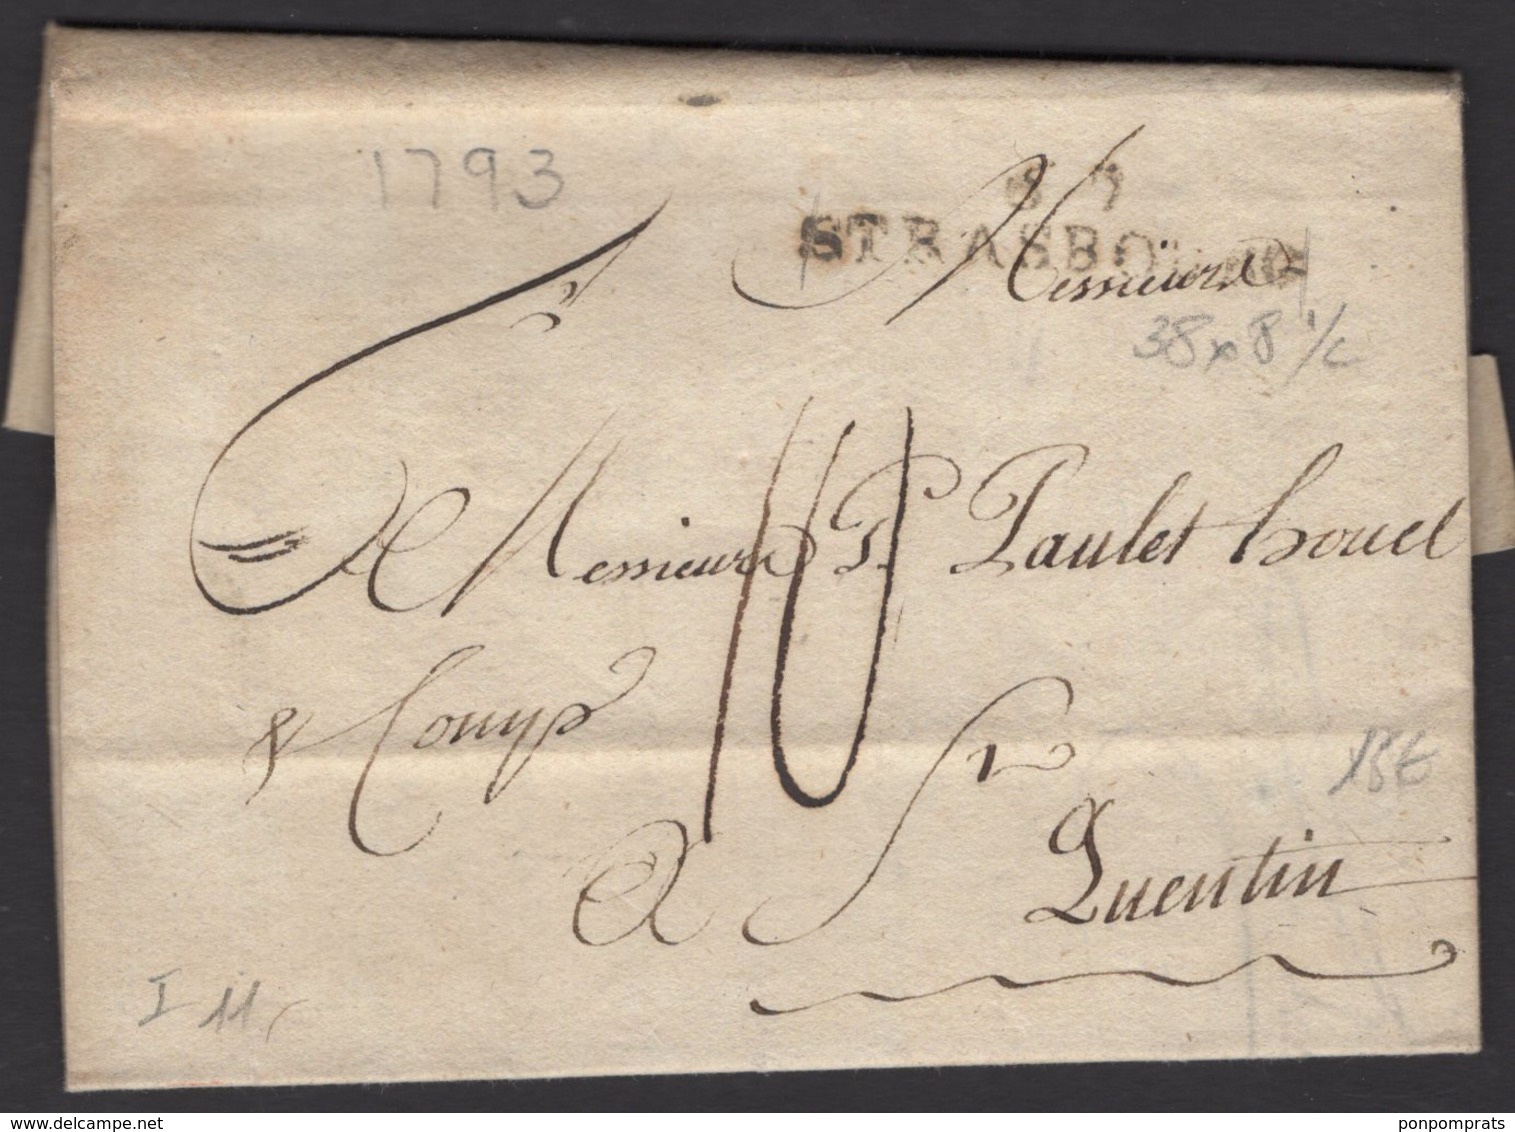 1793
67
STRASBOURG
Messieurs
38 x 8 1/2
A Messieurs P. Paulet houel
10
& Comp
A St
Quentin
15 €
I 11
www.delcampe.net
ponpomprats